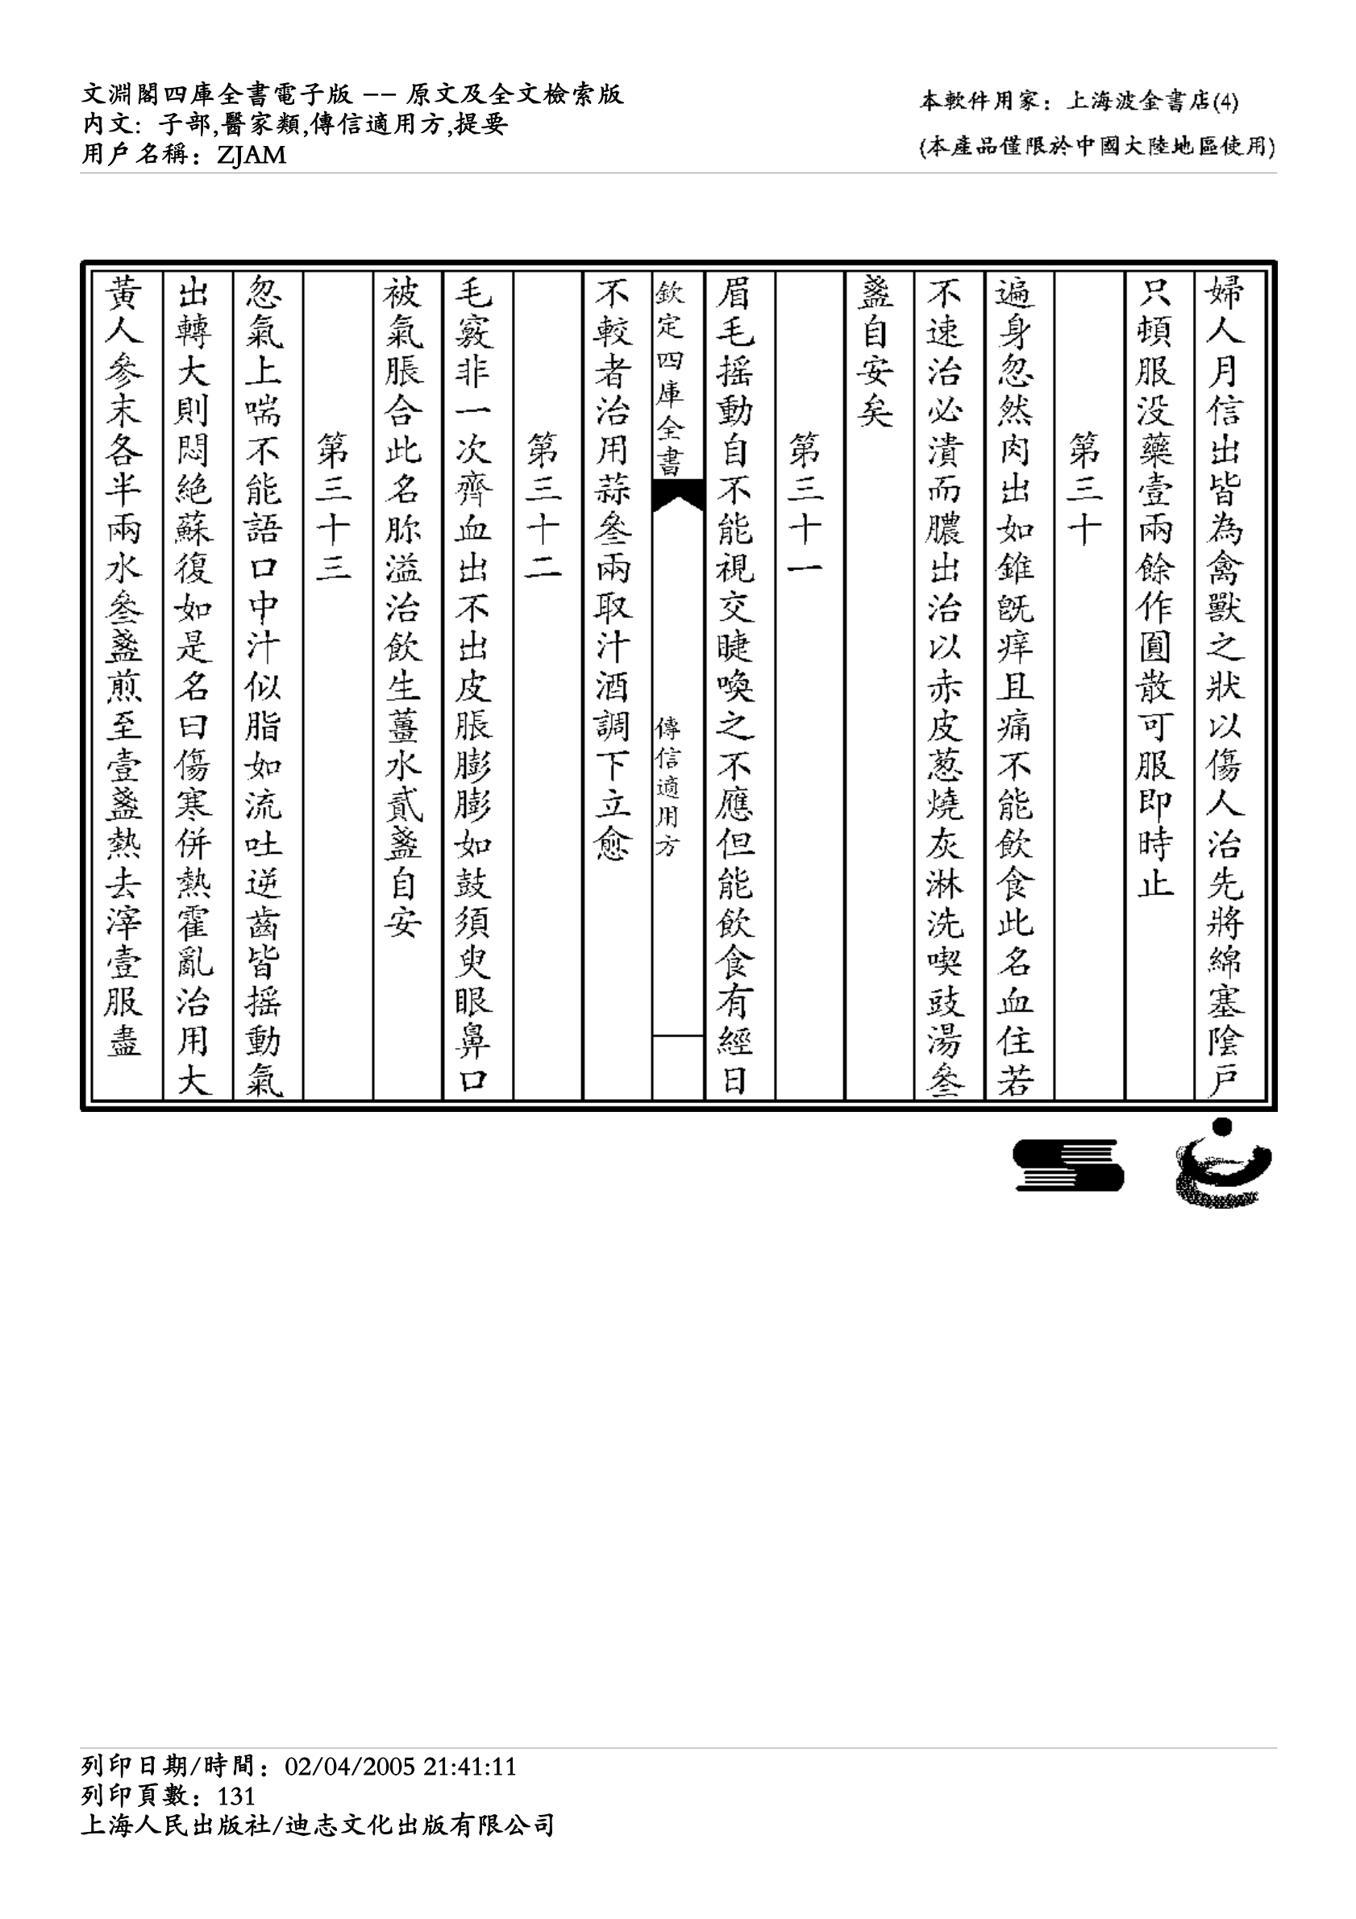 文淵閣四庫全書電子版 -- 原文及全文檢索版
內文: 子部,醫家類,傳信適用方,提要
用戶名稱: ZJAM
本軟件用家: 上海波金書店(4)
(本產品僅限於中國大陸地區使用)
婦人月信出皆為禽獸之狀以傷人治先將綿塞陰戶
只頓服没藥壹兩餘作圓散可服即時止
第三十
遍身忽然肉出如錐既痒且痛不能飲食此名血住若
不速治必潰而膿出治以赤皮葱燒灰淋洗喫豉湯叄
盞自安矣
第三十一
眉毛摇動自不能視交睫喚之不應但能飲食有經日
欽定四庫全書
傳信適用方
不較者治用蒜叄兩取汁酒調下立愈
第三十二
毛竅非一次齊血出不出皮脹膨膨如鼓須臾眼鼻口
被氣脹合此名脈溢治飲生薑水貳盞自安
第三十三
忽氣上喘不能語口中汁似脂如流吐逆齒皆摇動氣
出轉大則悶絕蘇復如是名曰傷寒併熱霍亂治用大
黃人參末各半兩水叄盞煎至壹盞熱去滓壹服盡
列印日期/時間: 02/04/2005 21:41:11
列印頁數: 131
上海人民出版社/迪志文化出版有限公司